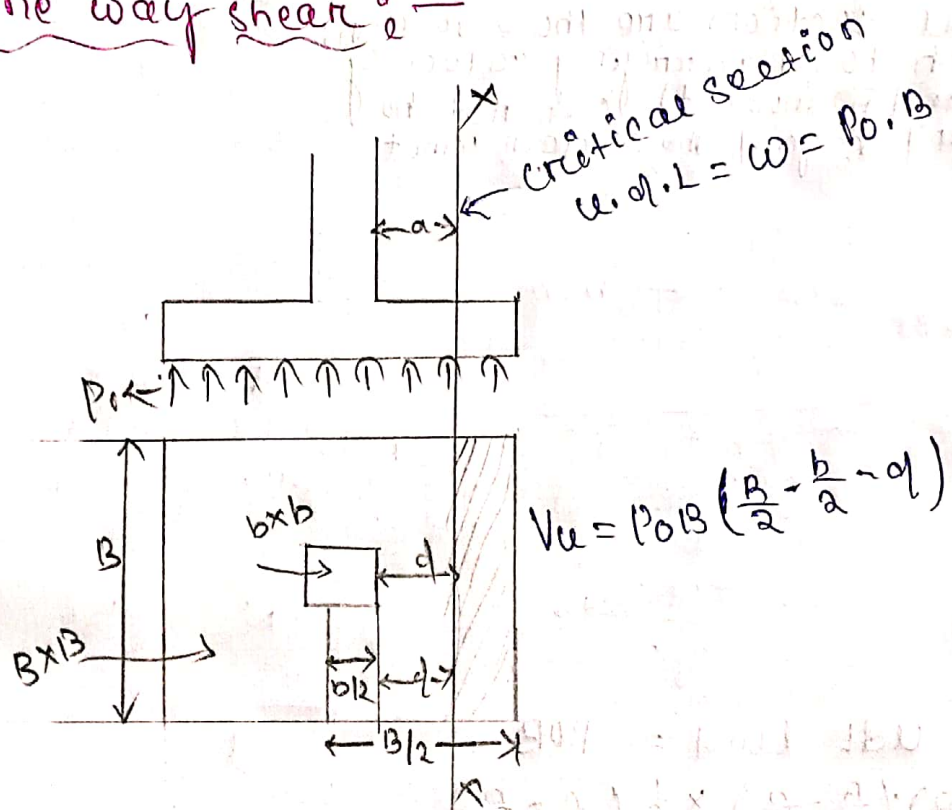 ne way shear :-
X
critical section
u.d.L = w = Po.B
a
Po
b×b
B
d
Vu = PoB(B/2 - b/2 - d)
B×B
b/2
d
B/2
X